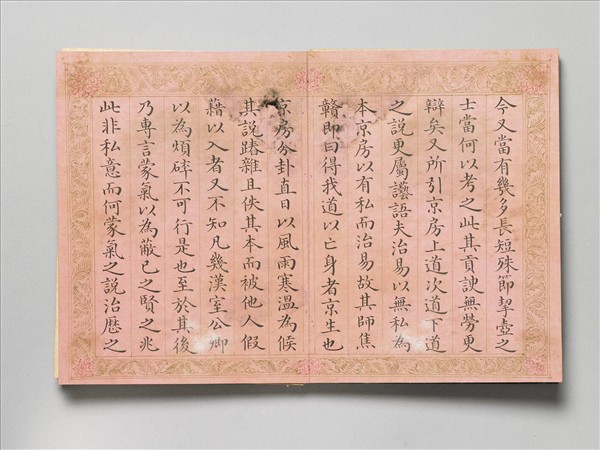 今又當有幾多長短殊節挈壺之
士當何以考之此其貢諛無勞更
辯矣又所引京房上道次道下道
之說更屬讛語夫治易以無私為
本京房以有私而治易故其師焦
贛即曰得我道以亡身者京生也
京房分卦直日以風雨寒溫為候
其說踳雜且佚其本而被他人假
藉以入者又不知凡幾漢室公卿
以為煩碎不可行是也至於其後
乃專言蒙氣以為蔽已之賢之兆
此非私意而何蒙氣之說治歷之